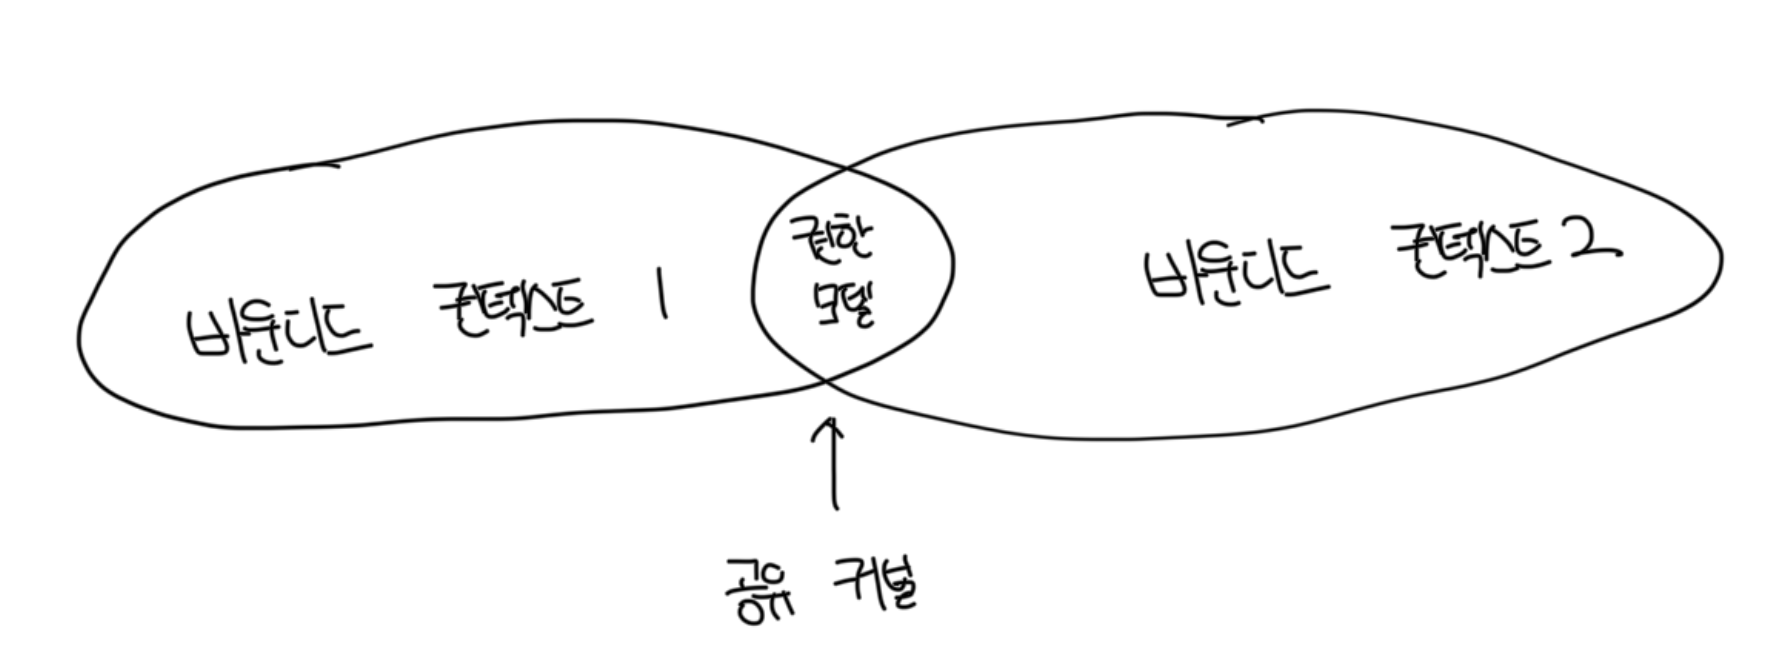 바운디드 컨텍스트 1
권한
모델
바운디드 컨텍스트 2
공유 커널